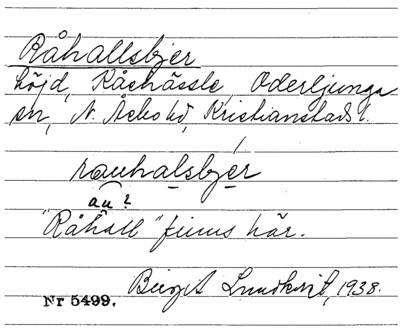 Råhallsbjer
höjd, Kåehässle, Oderljunga
sn, N. Åsbo hd, Kristianstads l.
rauhalsbjer
au?
"Råhall" finns här.
Birgit Lundkvist, 1938.
Nr 5499.